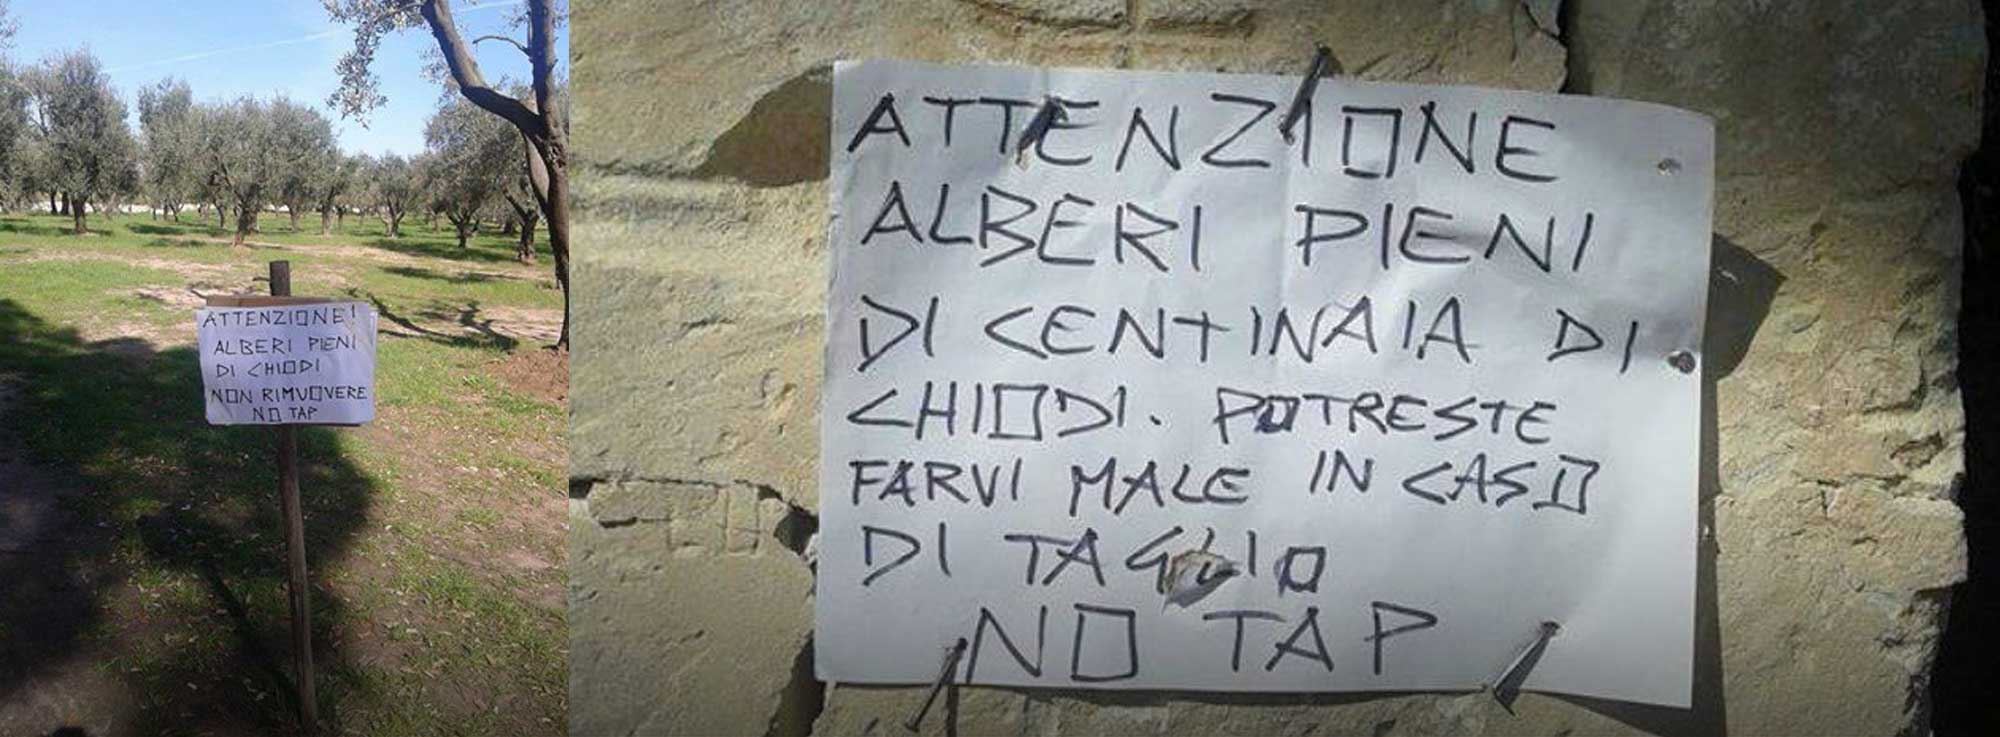 ATTENZIONE!
ALBERI PIENI
DI CHIODI
NON RIMUOVERE
NO TAP
ATTENZIONE
ALBERI PIENI
DI CENTINAIA DI
CHIODI. POTRESTE
FARVI MALE IN CASO
DI TAGLIO
NO TAP